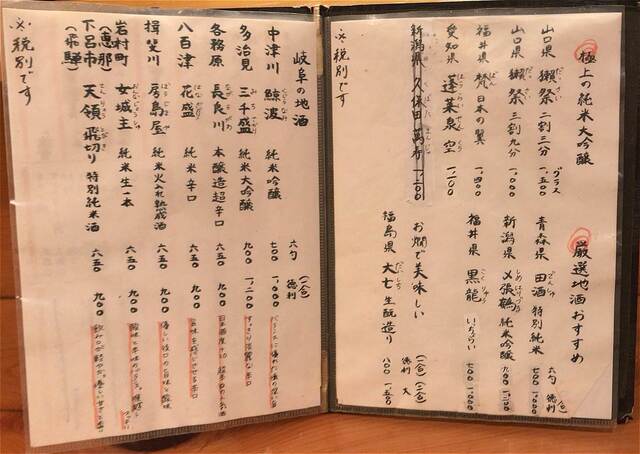 極上の純米大吟醸
グラス
山口県 獺祭 だっさい 二割三分 一,五〇〇
山口県 獺祭 だっさい 三割九分 一,〇〇〇
福井県 梵 ぼん 日本の翼 一,四〇〇
愛知県 蓬莱泉 空 一,二〇〇
新潟県 久保田 萬寿
※税別です
厳選地酒おすすめ
六勺 徳利(一合)
青森県 田酒 でんしゅ 特別純米
新潟県 〆張鶴 しめはりつる 純米吟醸
福井県 黒龍 こくりゅう いっちょらい 七〇〇 一,〇〇〇
お燗で美味しい
徳利(一合) 大(二合)
福島県 大七 だいしち 生酛造り 八〇〇 一,五〇〇
岐阜の地酒
六勺 徳利(一合)
中津川 鯨波 くじらなみ 純米吟醸 七〇〇 一,〇〇〇
多治見 三千盛 みちさかり 純米大吟醸 九〇〇 一,二〇〇
各務原 長良川 ながらがわ 本醸造超辛口 六五〇 九〇〇
八百津 花盛 はなざかり 純米辛口 六五〇 九〇〇 旨味を感じさせる辛口
揖斐川 房島屋 純米火入れ熟成酒 六五〇 九〇〇
岩村町(恵那) 女城主 純米生一本 六五〇 九〇〇
下呂市(飛騨) 天領 てんりょう 飛切り 特別純米酒 六五〇 九〇〇
※税別です